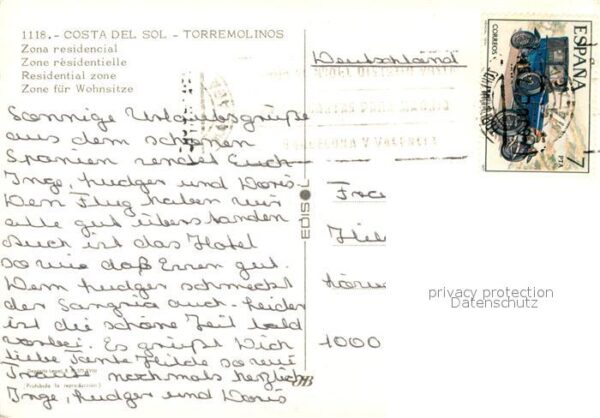 1118.- COSTA DEL SOL - TORREMOLINOS
Zona residencial
Zone résidentielle
Residential zone
Zone für Wohnsitze
Deutschland
CORREOS
ESPAÑA
7
PTA
Sonnige Urlaubsgrüße
aus dem schönen
Spanien sendet Euch
Inge, Ludger und Doris.
Den Flug haben wir
alle gut überstanden
Auch ist das Hotel
sowie daß Essen gut.
Dem Ludger schmeckt
der Sangria auch. Leider
ist die schöne Zeit bald
vorbei. Es grüßt Dich
liebe Tante Hilde sowie
Traute nochmals herzlich
Inge, Ludger und Doris
(Prohibida la reproducción)
EDISOL
Frau
Hil
1000
privacy protection
Datenschutz